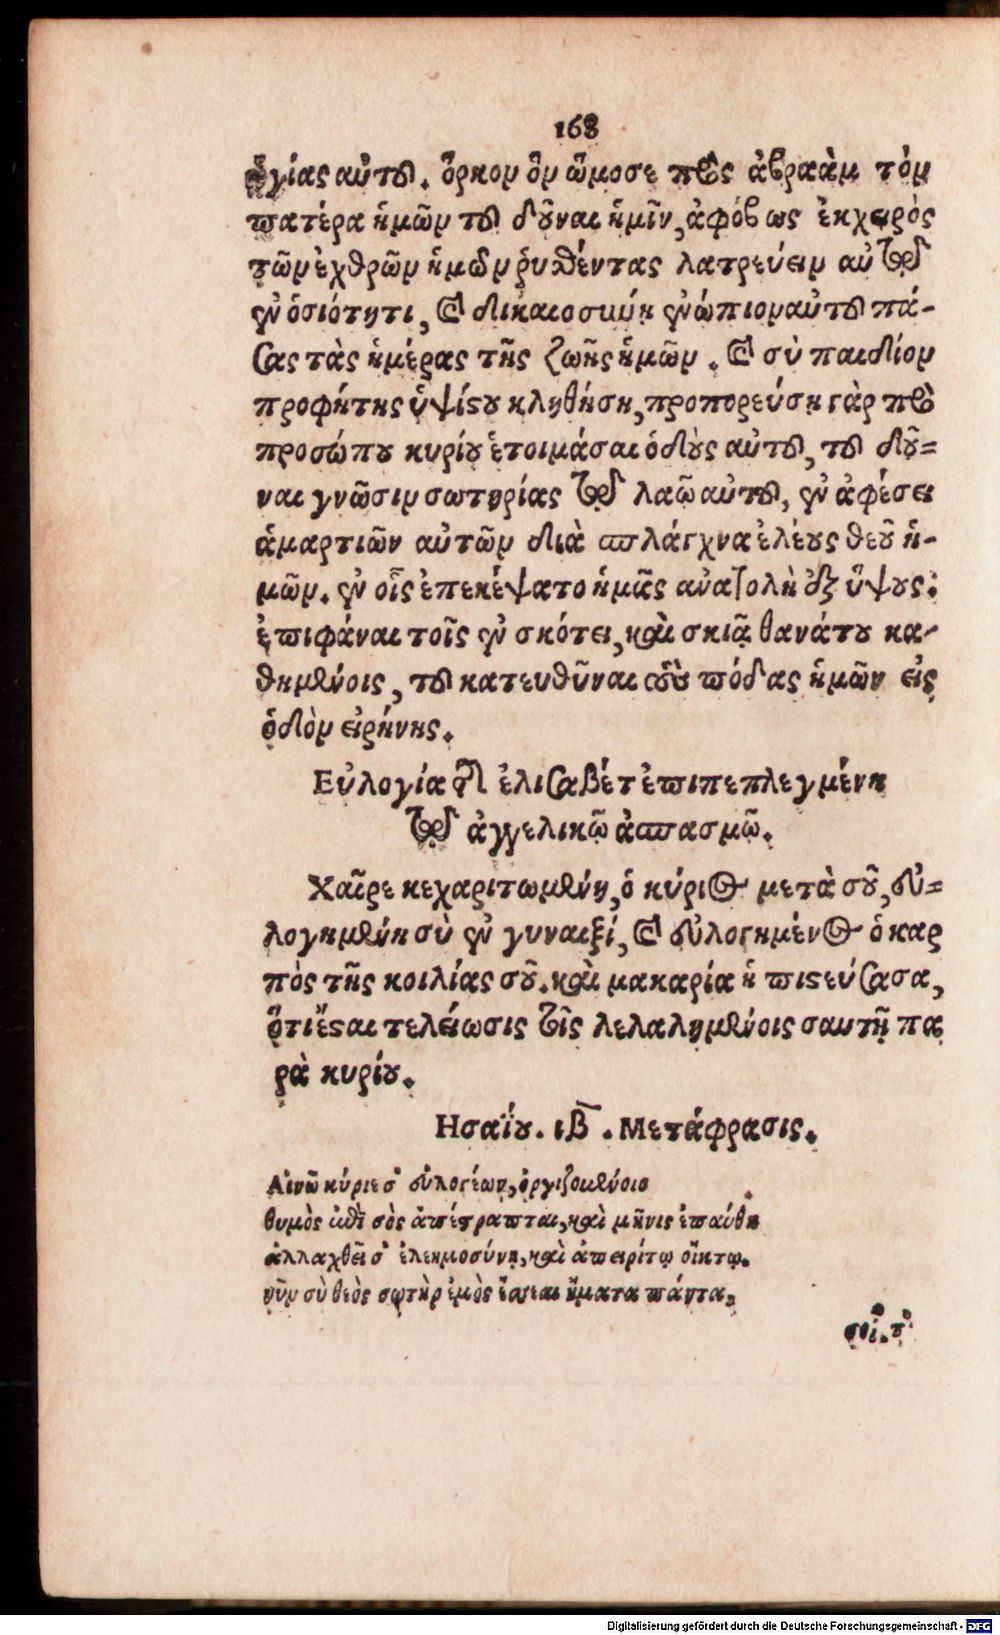 168
ἁγίας αὐτοῦ. ὅρκον ὃν ὤμοσε πρὸς ἀβραὰμ τὸν
πατέρα ἡμῶν τοῦ δοῦναι ἡμῖν, ἀφόβως ἐκχειρὸς
τῶν ἐχθρῶν ἡμῶν ῥυσθέντας λατρεύειν αὐτῷ
ἐν ὁσιότητι, καὶ δικαιοσύνη ἐνώπιον αὐτοῦ πά-
σας τὰς ἡμέρας τῆς ζωῆς ἡμῶν. καὶ σὺ παιδίον
προφήτης ὑψίστου κληθήση, προπορεύση γὰρ πρὸ
προσώπου κυρίου ἑτοιμάσαι ὁδοὺς αὐτοῦ, τοῦ δοῦ-
ναι γνῶσιν σωτηρίας τῷ λαῷ αὐτοῦ, ἐν ἀφέσει
ἁμαρτιῶν αὐτῶν διὰ σπλάγχνα ἐλέους θεοῦ ἡ-
μῶν. ἐν οἷς ἐπεσκέψατο ἡμᾶς ἀνατολὴ ἐξ ὕψους:
ἐπιφάναι τοῖς ἐν σκότει, καὶ σκιᾷ θανάτου κα-
θημένοις, τοῦ κατευθῦναι τοὺς πόδας ἡμῶν εἰς
ὁδὸν εἰρήνης.
Εὐλογία τῆς ἐλισαβέτ ἐπιπεπλεγμένη
τῷ ἀγγελικῷ ἀσπασμῷ.
Χαῖρε κεχαριτωμένη, ὁ κύριος μετὰ σοῦ, εὐ-
λογημένη σὺ ἐν γυναιξί, καὶ εὐλογημένος ὁ καρ
πὸς τῆς κοιλίας σοῦ. καὶ μακαρία ἡ πιστεύσασα,
ὅτι ἔσται τελείωσις τοῖς λελαλημένοις σαυτῇ πα
ρὰ κυρίου.
Ησαΐου. ιβ̄. Μετάφρασις.
Αἰνῶ κύριε σ' εὐλογέων, ὀργιζομένοιο
θυμὸς ἐπεὶ σὸς ἀπέτραπται, καὶ μῆνις ἐπαύθη
ἀλλαχθεῖσ' ἐλεημοσύνη, καὶ ἀπειρίτῳ οἴκτῳ.
νῦν σὺ θεὸς σωτὴρ ἐμὸς ἔσσεαι ἤματα πάντα,
σοί. τ'
Digitalisierung gefördert durch die Deutsche Forschungsgemeinschaft - DFG